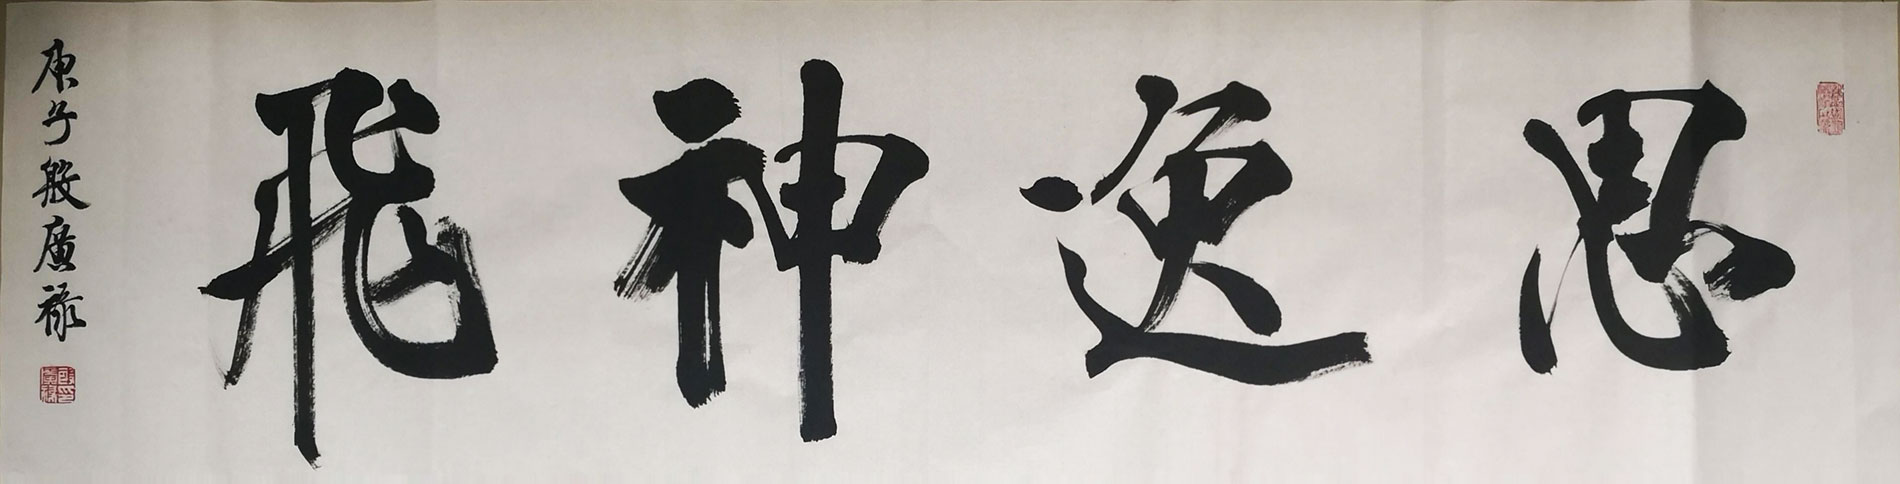 思逸神飛
庚子殷廣禄